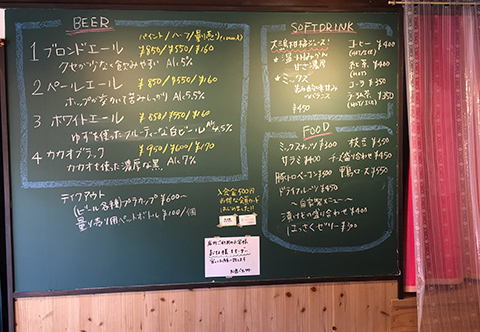 BEER
パイント/ハーフ/量り売り
1 ブロンドエール ¥850/¥550/¥160
クセが少なく飲みやすい Alc.5%
2 ペールエール ¥850/¥550/¥160
ホップが きいて苦みしっかり Alc.5.5%
3 ホワイトエール ¥850/¥550/¥160
ゆずを使ったフルーティーな白ビール Alc4.5%
4 カカオブラック ¥950/¥600/¥170
カカオを使った濃厚な黒. Alc.7%
テイクアウト
(ビール各種)プラカップ ¥600〜
量り売り用ペットボトル ¥100/個
入会金500円
SOFTDRINK
ジュース
温州みかん
甘さ濃厚
ミックス
バランス
¥450
コーヒー ¥400
(HOT/ICE)
紅茶 ¥400
(HOT/ICE)
コーラ ¥350
¥350
FOOD
ミックスナッツ ¥300 枝豆 ¥350
サラミ ¥400 チーズ盛り合わせ ¥450
豚トロベーコン ¥500 ロース ¥550
ドライフルーツ ¥450
〜自家製メニュー〜
漬けもの盛り合わせ ¥400
はっさくゼリー ¥300